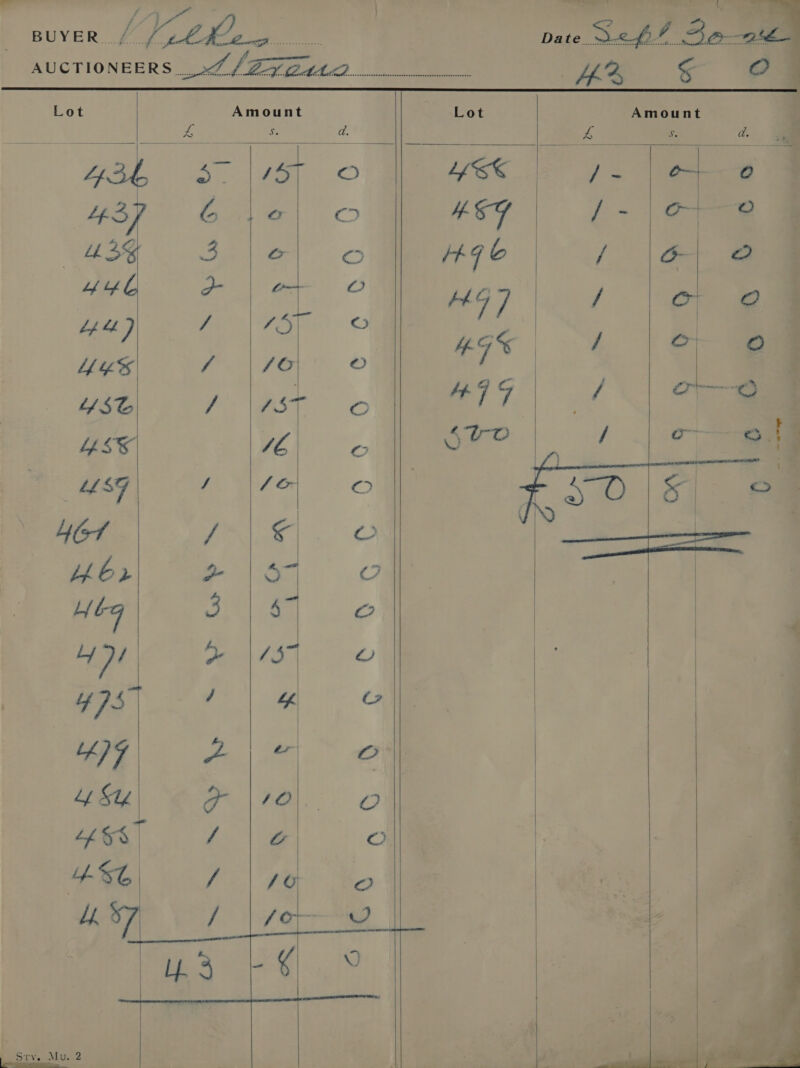 BUYER
Date Sept 30
AUCTIONEERS Stevens
43 8 0
Lot Amount Lot Amount
£ s. d. £ s. d.
436 5 15 0
437 6 0 0
438 3 0 0
446 2 0 0
447 1 15 0
448 1 10 0
456 1 15 0
458 16 0
459 1 10 0
461 1 8 0
462 2 5 0
469 3 5 0
471 2 15 0
475 1 4 0
479 2 0 0
484 2 10 0
485 1 0 0
486 1 10 0
487 1 10 0
43 - 8 0
488 1 - 0 0
489 1 - 0 0
496 1 0 0
497 1 0 0
498 1 0 0
499 1 0 0
500 1 0 0
£50 8 0
Srv. Mu. 2